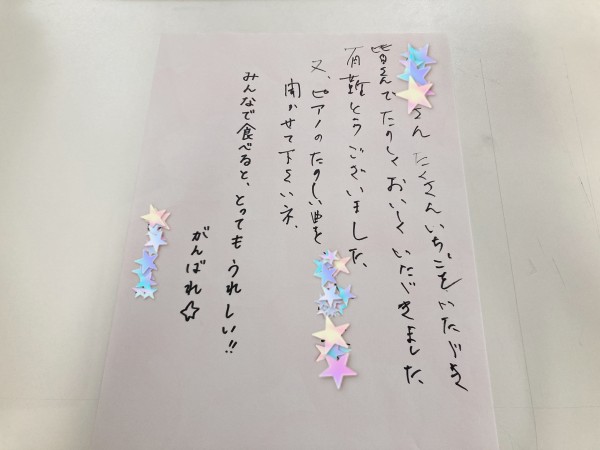 さん たくさんいちごをいただき
皆さんでたのしくおいしくいただきました。
有難とうございました。
又、ピアノのたのしい曲を
聞かせて下さいネ。
みんなで食べると、とってもうれしい!!
がんばれ☆